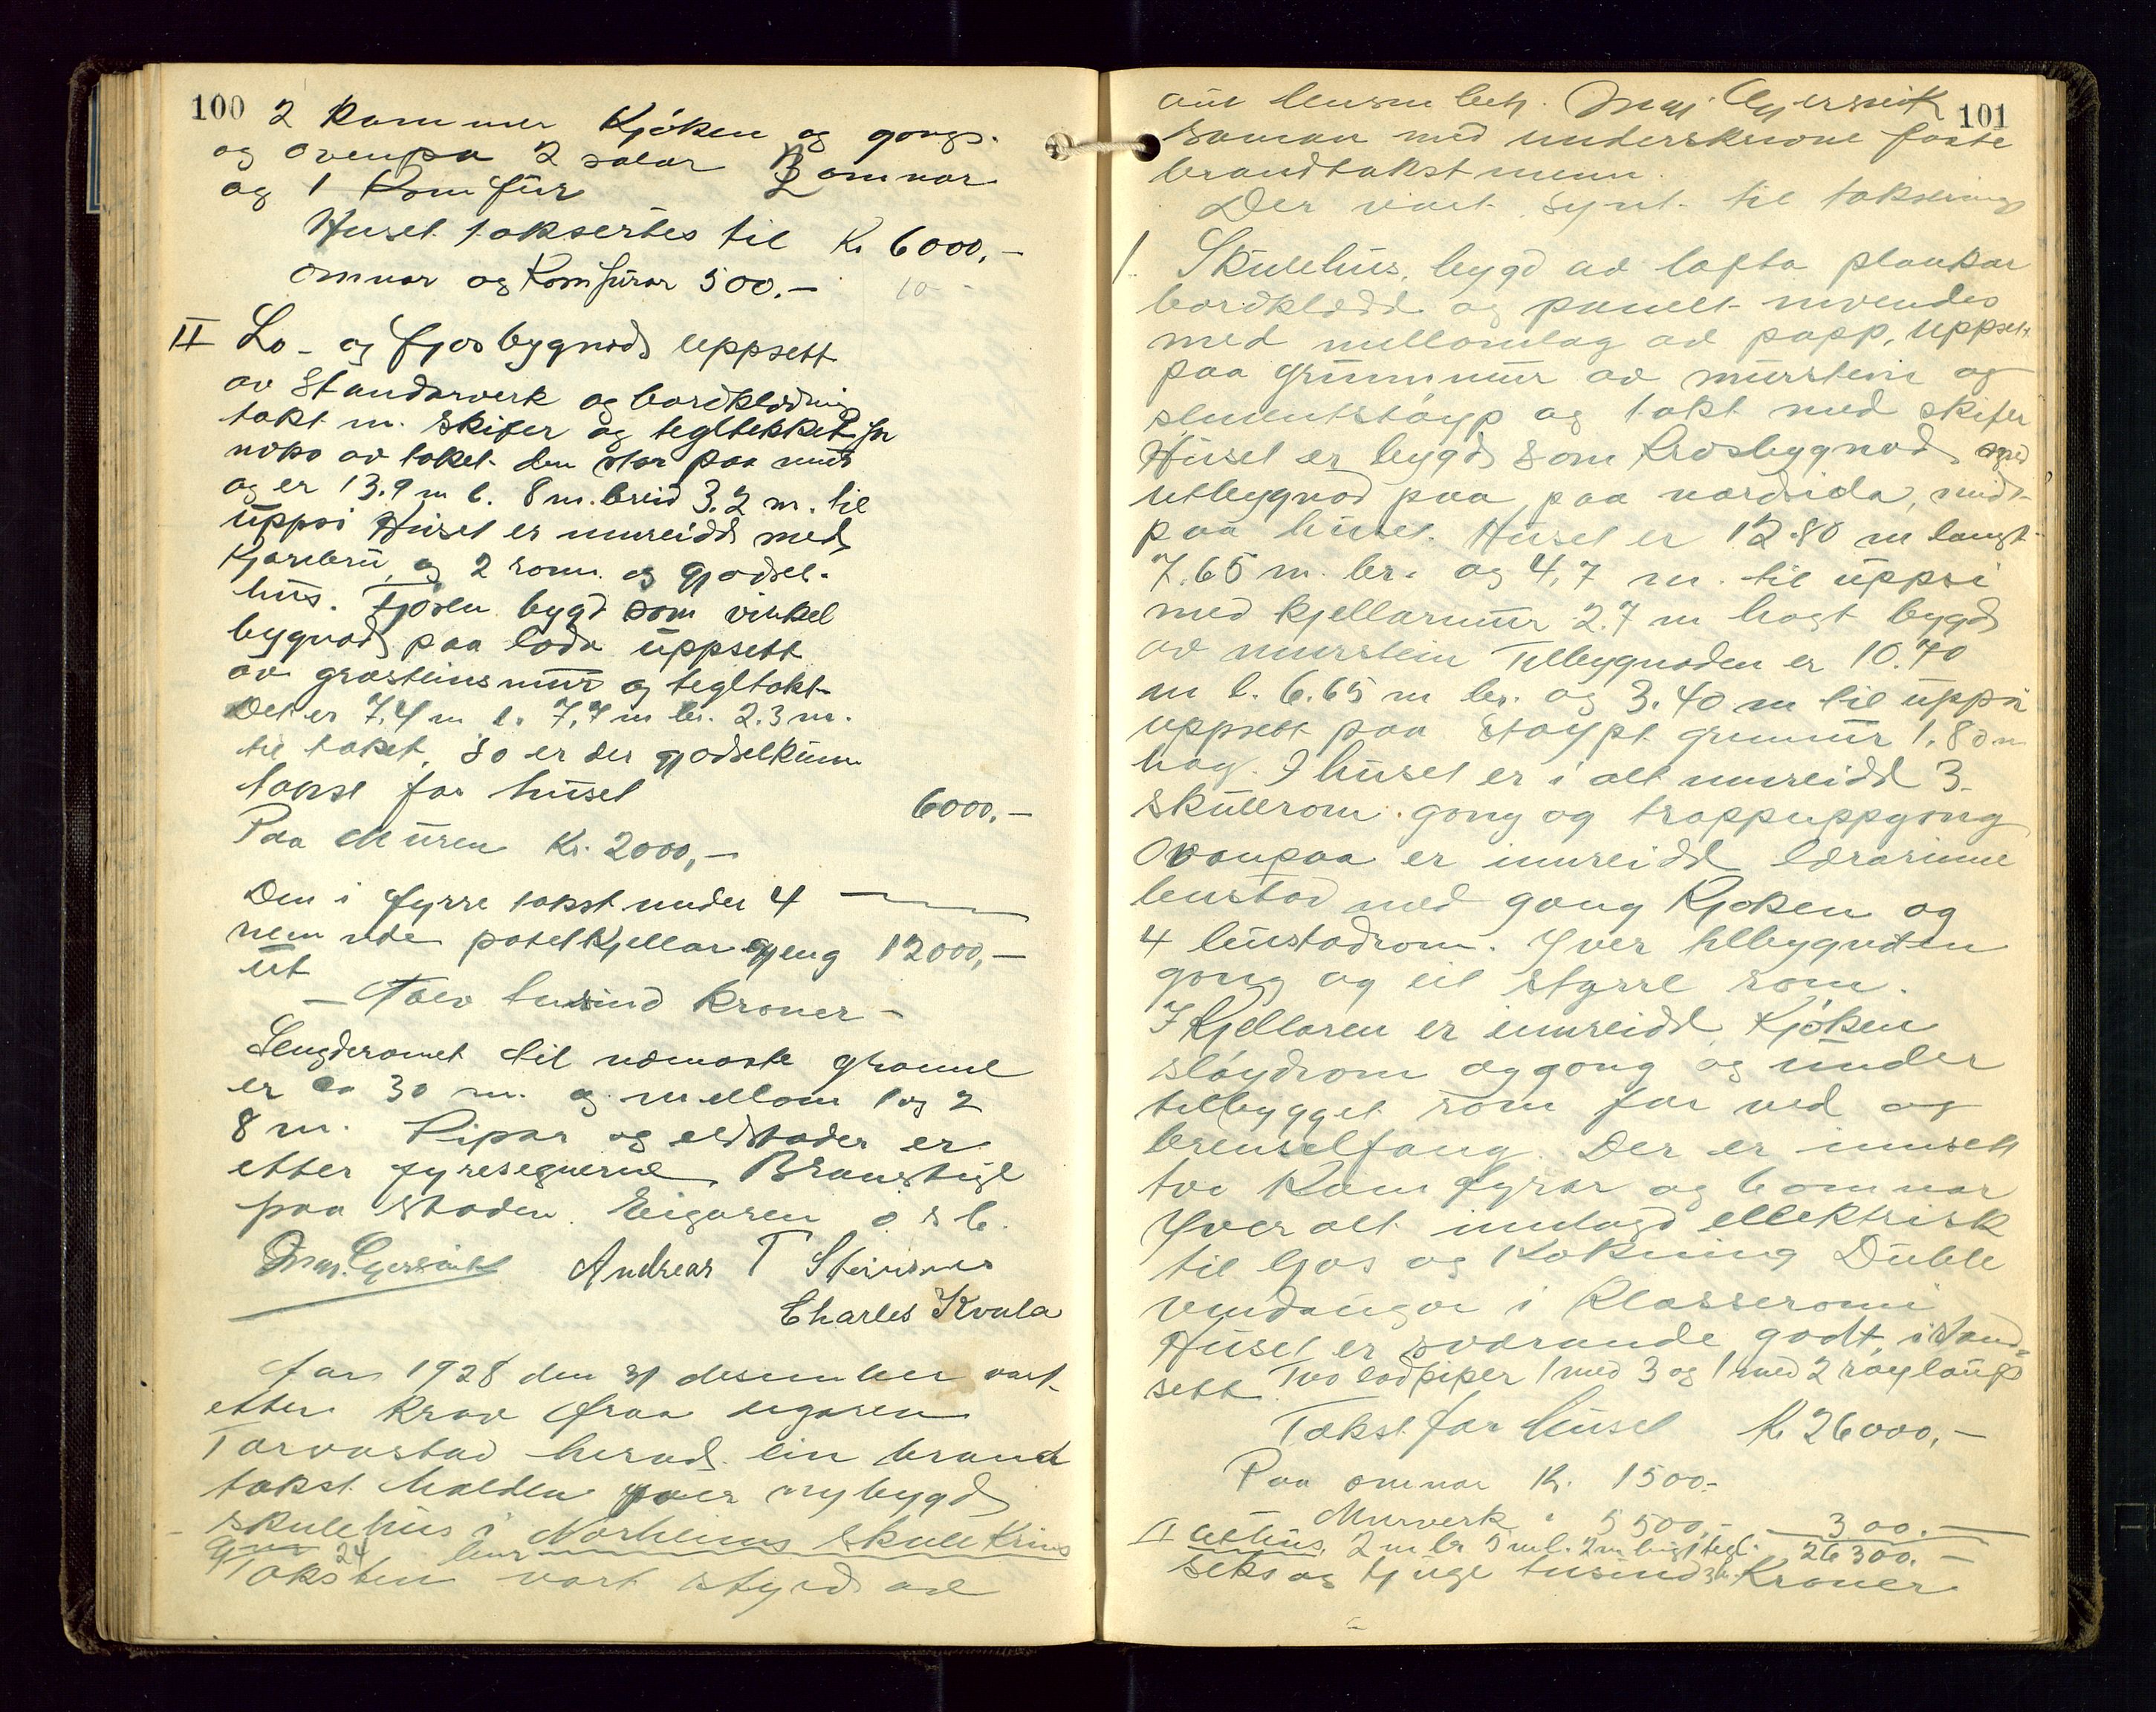 100
2 Kammer Kjøken og gongs.
og ovenpa 2 salar 2 omnar
og 1 Komfür
Huset taksertes til Kr 6000,-
omnar og Komfürar 500.- 10 -
II Lo- og fjosbygnad uppsett
av Standarverk og bordklædning
takt m. skifer og tegltekket for
noko av taket. den star paa mür
og er 13.9 m l. 8 m. breid 3.2 m. til
üppsi Hüset er innreidd med
Kjørebru og 2 rom. og gjødsel-
hüs. Fjosen bygd som vinkel
bygnad paa loda üppsett
av grasteinsmür og tegltakt
Det er 7,4 m l. 7,7 m br. 2.3 m.
til taket, so er der gjødselkum
takst for hüset 6000.-
Paa Müren Kr. 2000,-
Den i fyrre takst under 4
nemnde potetkjellar gjeng 12000,-
üt
- Tolv tusind Kroner -
Lengderomet til næmaste granne
er ca 30 m. og mellom 1 og 2
8 m. Pipar og eldstader er
etter fyresegnerne Branstige
paa staden. Eigaren o s b.
Andreas T Steinsnes
Charles Kvala
Aar 1928 den 31 desember vart
etter krav fraa eigaren
Torvastad herad ein brand
takst halden yver nybygd
skulehus i Norheims skulekrins
24
Taksten vart styrd av
101
aut lensm bet.
saman med underskrivne faste
brandtakstmenn.
Der vart synt til taksering
1. Skulehüs, bygd av lafta plankar
bordklædd og panelt invendes
med mellomlag av papp, üppsett
paa grünnmür av mürstein og
sementstøyp og takt med skifer
Hüset er bygd som krosbygnad, med
utbygnad paa paa nordsida, midt
paa hüset. Hüset er 12.80 m langt
7.65 m. br. og 4,7 m. til üppsi
med kjellarmür 2.7 m høgt bygd
av mürstein Tilbygnaden er 10.70
m l. 6.65 m br. og 3.40 m til üppsi
uppsett paa støypt grunnmür 1.80 m
høg. I hüset er i alt innreidd 3
skülerom. gong og trappuppgong
Ovanpaa er innreidd lærarinne
bustad med gong Kjøken og
4 bustadrom. Yver tilbygnaden
gong og eit større rom.
I Kjellaren er innreidd Kjøken
sløydrom og gong og ünder
tilbygget rom for ved og
brenselfang. Der er innsett
tvo Komfyrar og 6 omnar
Yver alt innlagd ellektrisk
til ljos og Kokning Düble
vindaugor i Klasseromi
Hüset er sværande godt, istand-
sett. Tvo lodpiper 1 med 3 og 1 med 2 røylaup
Takst for hüset Kr 26000,-
Paa omnar Kr. 1500.-
Murverk " 5500,- 300.-
II uthüs. 2 m br 5 m l. 2 m høgt tegl. 26300.-
seks og tjüge tusind 3h. Kroner